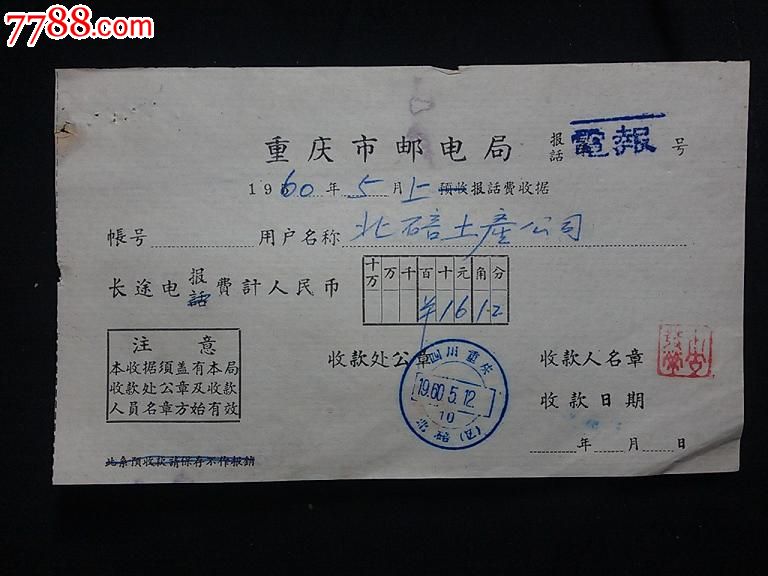 7788.com
重庆市邮电局
报话 電報 号
1960年5月上预收报话费收据
帐号 用户名称 北碚土產公司
长途电报话费計人民币
十万 万 千 百 十 元 角 分
¥ 1 6 1 2
注意
本收据须盖有本局
收款处公章及收款
人员名章方始有效
收款处公章
四川重庆
1960.5.12
10
北碚(四)
收款人名章
收款日期
年 月 日
此系预收款请保存不作报销